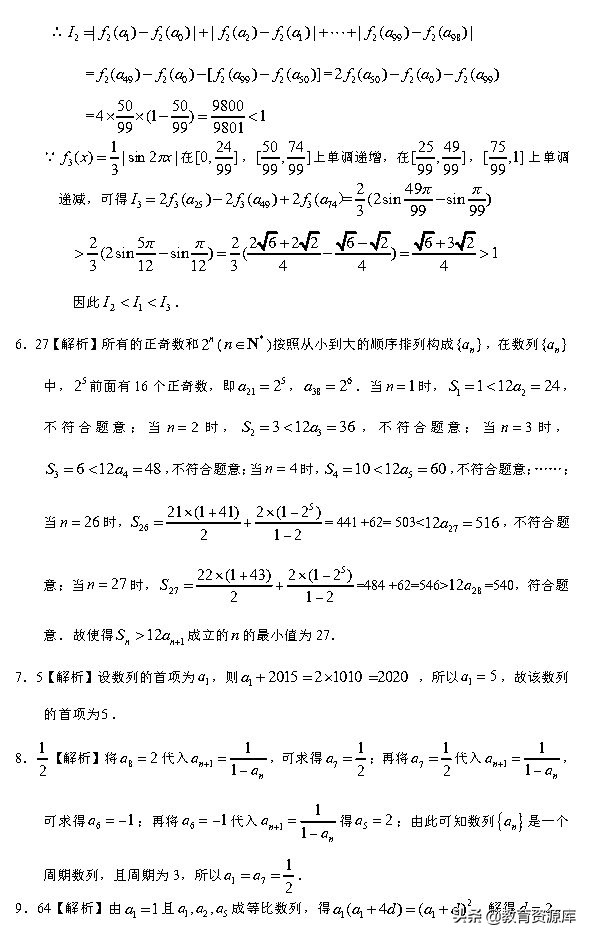 ∴ I₂ =| f₂(a₁) − f₂(a₀) | + | f₂(a₂) − f₂(a₁) | + ⋯ + | f₂(a₉₉) − f₂(a₉₈) |
= f₂(a₄₉) − f₂(a₀) − [f₂(a₉₉) − f₂(a₅₀)] = 2f₂(a₅₀) − f₂(a₀) − f₂(a₉₉)
= 4 × 50/99 × (1 − 50/99) = 9800/9801 < 1
∵ f₃(x) = 1/3 | sin 2πx | 在[0, 24/99]，[50/99, 74/99]上单调递增，在[25/99, 49/99]，[75/99, 1] 上单调
递减，可得 I₃ = 2f₃(a₂₅) − 2f₃(a₄₉) + 2f₃(a₇₄) = 2/3 (2sin 49π/99 − sin π/99)
> 2/3 (2sin 5π/12 − sin π/12) = 2/3 ((2√6+2√2)/4 − (√6−√2)/4) = (√6+3√2)/4 > 1
因此 I₂ < I₁ < I₃．
6．27【解析】所有的正奇数和 2ⁿ (n∈N*)按照从小到大的顺序排列构成{aₙ}，在数列{aₙ}
中，2⁵前面有 16 个正奇数，即 a₂₁ = 2⁵，a₃₈ = 2⁶．当 n = 1 时，S₁ = 1 < 12a₂ = 24，
不符合题意；当 n = 2 时，S₂ = 3 < 12a₃ = 36，不符合题意；当 n = 3 时，
S₃ = 6 < 12a₄ = 48，不符合题意；当 n = 4 时，S₄ = 10 < 12a₅ = 60，不符合题意；⋯⋯；
当 n = 26 时，S₂₆ = 21×(1+41)/2 + 2×(1−2⁵)/(1−2) = 441 +62= 503<12a₂₇ = 516，不符合题
意；当 n = 27 时，S₂₇ = 22×(1+43)/2 + 2×(1−2⁵)/(1−2) =484 +62=546>12a₂₈ =540，符合题
意．故使得 Sₙ > 12aₙ₊₁ 成立的 n 的最小值为 27．
7．5【解析】设数列的首项为 a₁，则 a₁ + 2015 = 2×1010 = 2020 ，所以 a₁ = 5，故该数列
的首项为5．
8．1/2【解析】将 a₈ = 2 代入 aₙ₊₁ = 1/(1−aₙ)，可求得 a₇ = 1/2；再将 a₇ = 1/2 代入 aₙ₊₁ = 1/(1−aₙ)，
可求得 a₆ = −1；再将 a₆ = −1 代入 aₙ₊₁ = 1/(1−aₙ) 得 a₅ = 2；由此可知数列{aₙ}是一个
周期数列，且周期为 3，所以 a₁ = a₇ = 1/2．
9．64【解析】由 a₁ = 1 且 a₁, a₂, a₅ 成等比数列，得 a₁(a₁ + 4d) = (a₁ + d)²，解得 d = 2
头条 @教育资源库